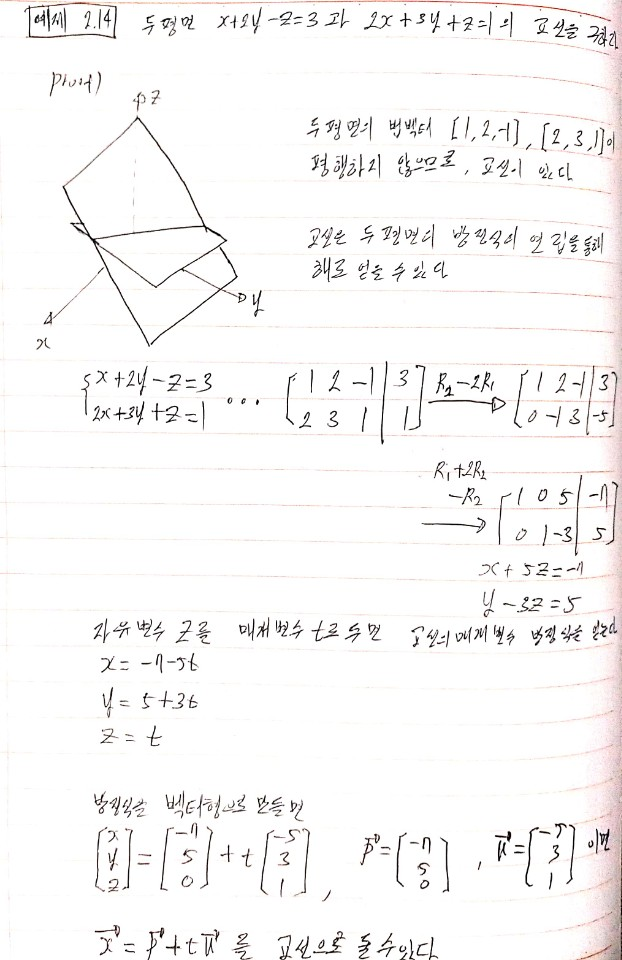 예제 2.14 두 평면 x+2y-z=3 과 2x+3y+z=1 의 교선을 구하라
proof)
z
y
x
두 평면의 법벡터 [1,2,-1], [2,3,1]이
평행하지 않으므로, 교선이 있다
교선은 두 평면의 방정식의 연립을 통해
해로 얻을 수 있다
{x+2y-z=3 2x+3y+z=1 ... [1 2 -1 | 3 2 3 1 | 1] R₂-2R₁ → [1 2 -1 | 3 0 -1 3 | -5]
R₁+2R₂ -R₂ → [1 0 5 | -7 0 1 -3 | 5]
x+5z=-7
y-3z=5
자유변수 z를 매개변수 t로 두면 교선의 매개변수 방정식을 얻는다
x=-7-5t
y=5+3t
z=t
방정식을 벡터형으로 만들면
[x y z] = [-7 5 0] + t[-5 3 1], p⃗=[-7 5 0], u⃗=[-5 3 1] 이면
x⃗=p⃗+tu⃗ 를 교선으로 둘 수 있다